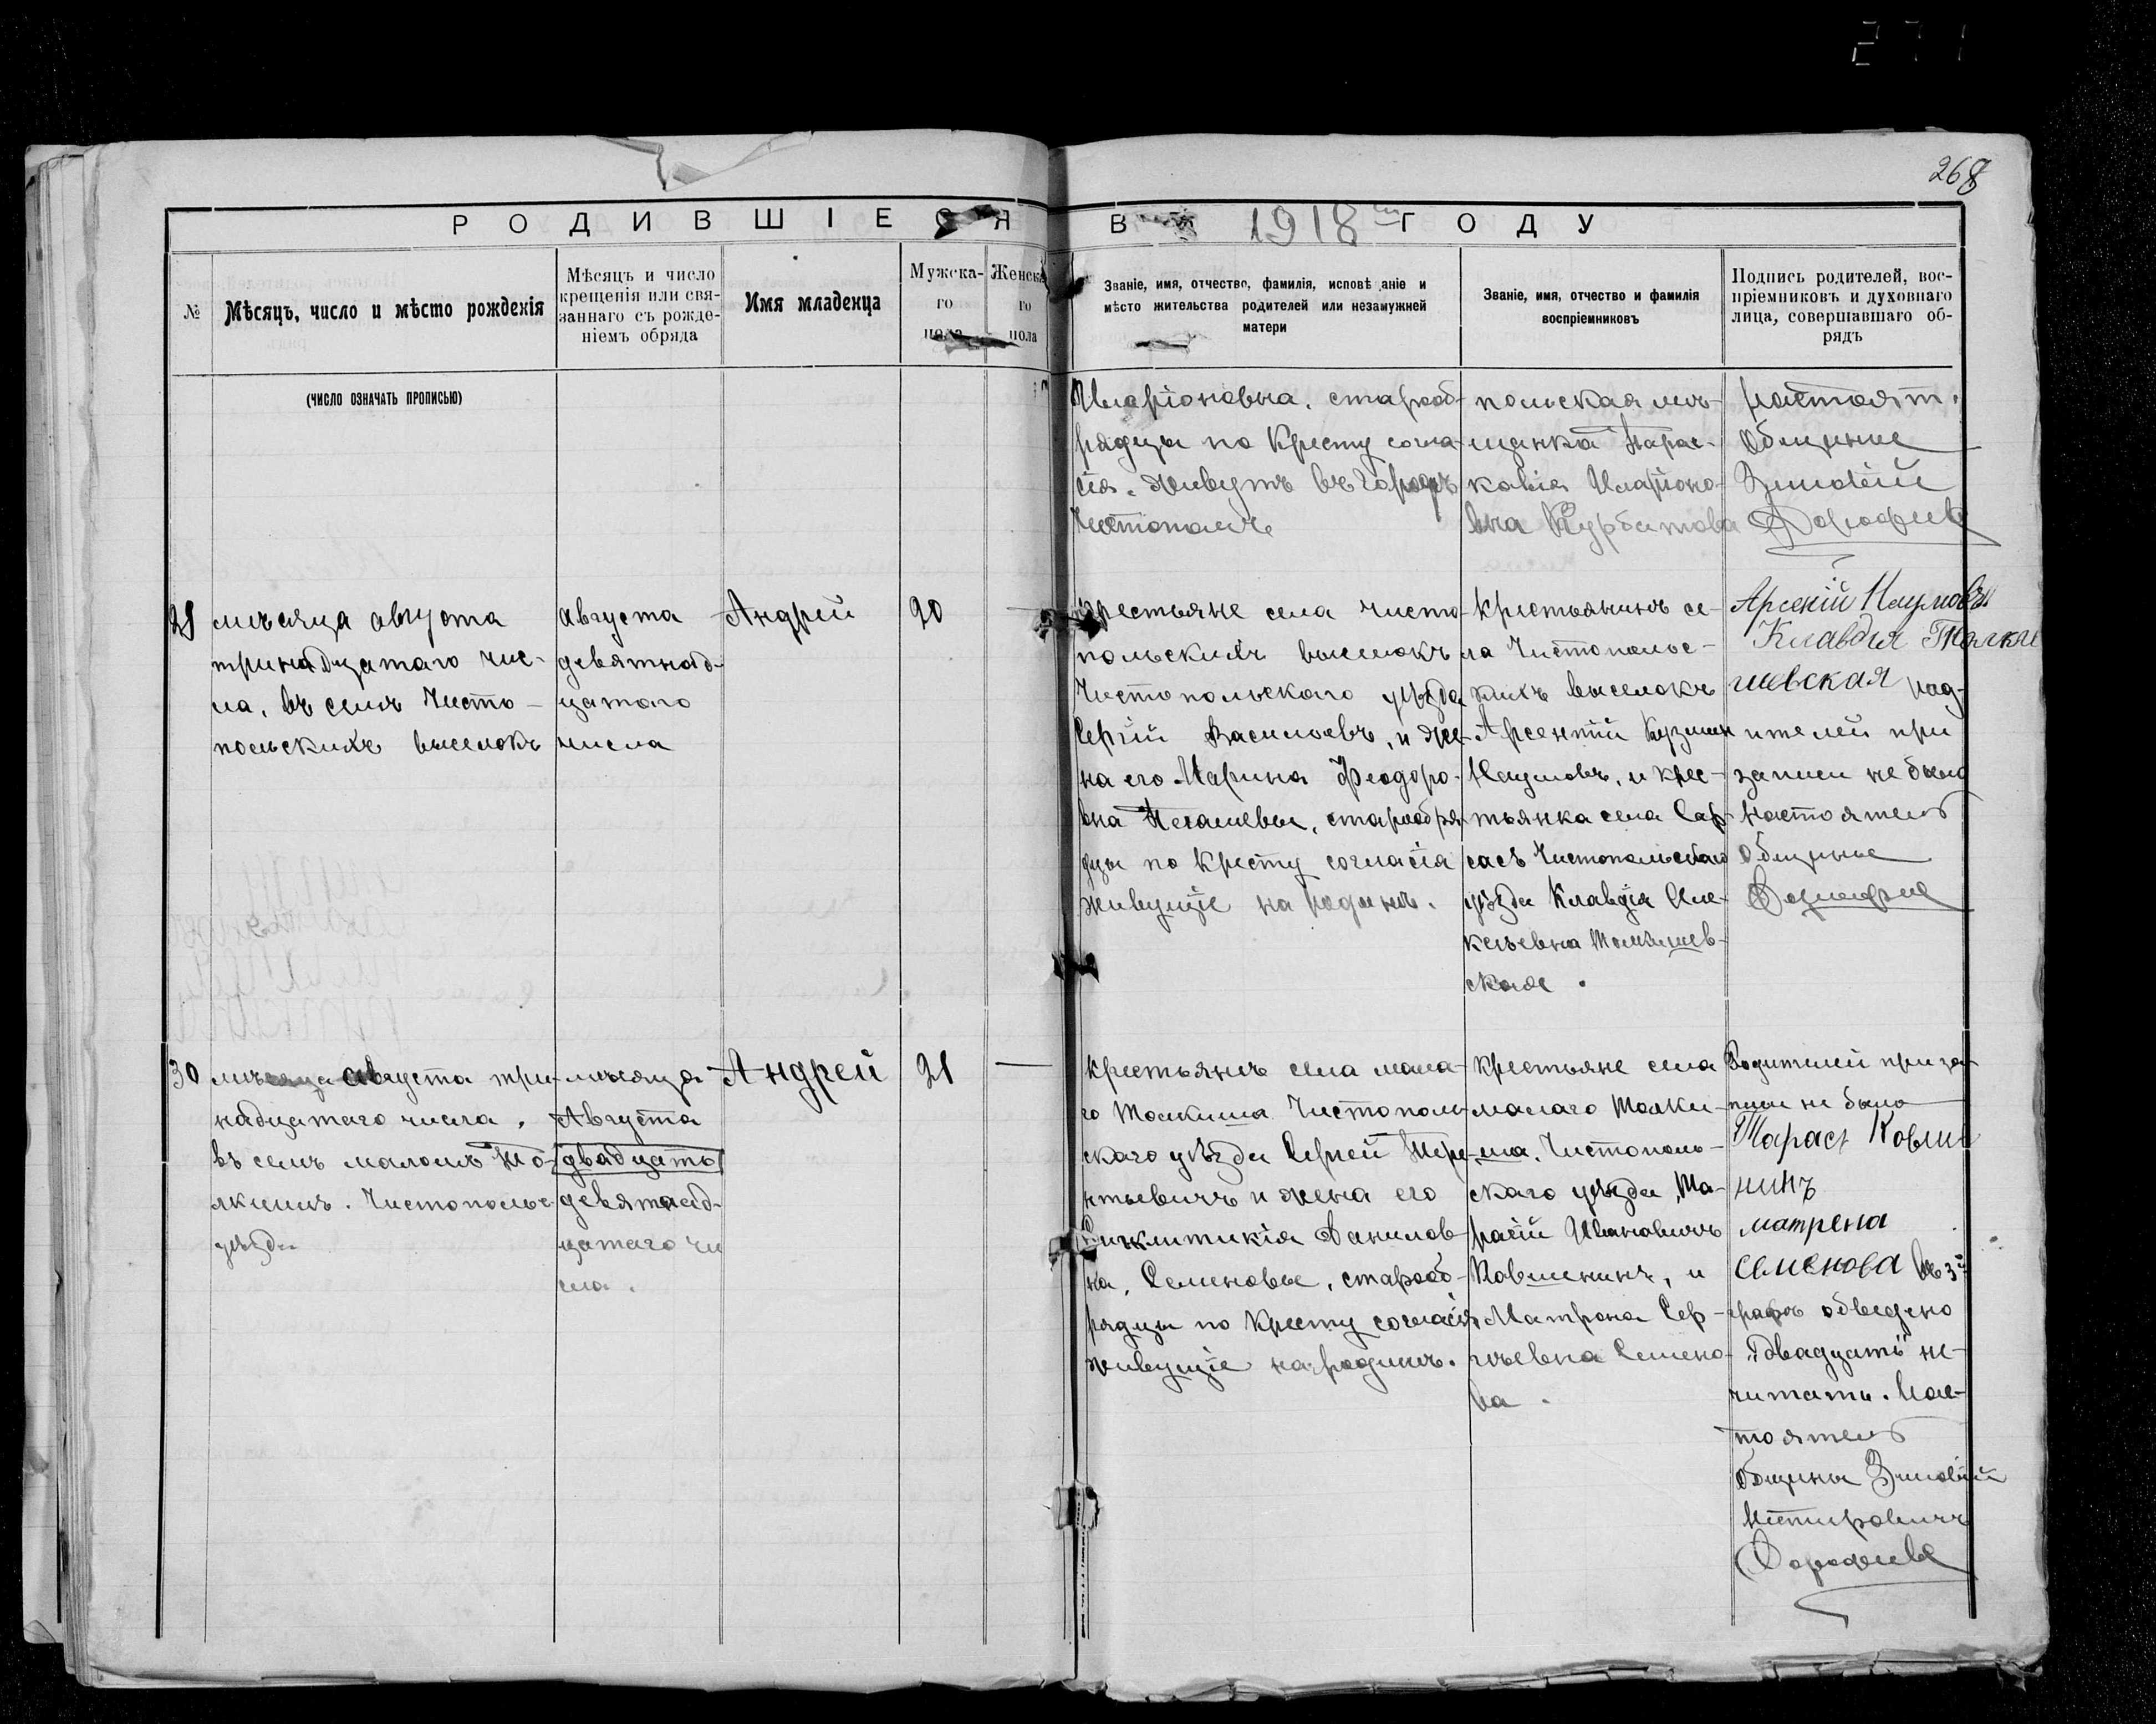 271
268
РОДИВШІЕСЯ ВЪ 1918 ГОДУ
№
Мѣсяцъ, число и мѣсто рожденія
(ЧИСЛО ОЗНАЧАТЬ ПРОПИСЬЮ)
Мѣсяцъ и число
крещенія или свя-
заннаго съ рожде-
ніемъ обряда
Имя младенца
Мужска-
го
пола
Женска
го
пола
Званіе, имя, отчество, фамилія, исповѣ аніе и
мѣсто жительства родителей или незамужней
матери
Званіе, имя, отчество и фамилія
воспріемниковъ
Подпись родителей, вос-
пріемниковъ и духовнаго
лица, совершавшаго об-
рядъ
Иларіоновна, старооб-
рядцы по Кресту согла-
сія. Живутъ въ городѣ
Чистополѣ
польская мѣ-
щанка Парас-
кавія Иларіоно-
вна Курбатова
Общины
Зиновій
мѣсяца августа
тринадцатаго чис-
ла, въ селѣ Чисто-
польскихъ выселокъ
августа
девятнад-
цатаго
числа
Андрей
20
крестьяне села чисто-
польскихъ выселокъ
Чистопольскаго уѣзда
Сергій Васильевъ, и же-
на его Марина Феодоро-
вна старообря-
дцы по кресту согласія
живущіе на родинѣ.
крестьянинъ се-
ла Чистопольс-
кихъ выселокъ
Арсентій Кузмин
Наумовъ, и крес-
тьянка села Сар-
сасъ Чистопольскаго
уѣзда Клавдія Але-
ксѣевна
ская.
Арсений Наумовъ
Клавдия
шевская род-
ителей при
записи не было
Настоятель
Общины
30
мѣсяца августа три-
надцатаго числа.
въ селѣ маломъ То-
лкишѣ. Чистопольс-
уѣзда
мѣсяца
Августа
двадцать
девятнад-
цатаго чи
сла.
Андрей
21
крестьянъ села мала-
го Толкиша Чистополь-
скаго уѣзда Сергей Тере-
нтьевичъ и жена его
Синклитикія Данилов-
на, Семеновы, старооб-
рядцы по Кресту согласія
живущіе на родинѣ.
крестьяне села
малаго Толки-
ша. Чистополь-
скаго уѣзда, Та-
расій Ивановичъ
Ковшенинъ, и
Матрона Сер-
гѣевна Семено-
ва.
Родителей при за-
писи не было
Тарасъ Ковши
нинъ
матрена
семенова Въ 3й
графѣ обведено
„двадцать" не-
читать. Нас-
тоятель
общины Зиновій